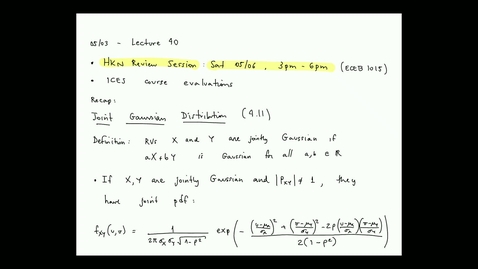 05/03 - Lecture 40
• HKN Review Session : Sat 05/06 , 3pm - 6pm (ECEB 1015)
• ICES course evaluations
Recap:
Joint Gaussian Distribution (4.11)
Definition: RVs X and Y are jointly Gaussian if
aX+bY is Gaussian for all a,b ∈ ℝ
• If X,Y are jointly Gaussian and |ρ_XY| ≠ 1, they
have joint pdf:
f_XY(u,v) = 1 / (2π σ_X σ_Y √(1-ρ²)) exp( - ( ((u-μ_X)/σ_X)² + ((v-μ_Y)/σ_Y)² - 2ρ ((u-μ_X)/σ_X) ((v-μ_Y)/σ_Y) ) / (2(1-ρ²)) )